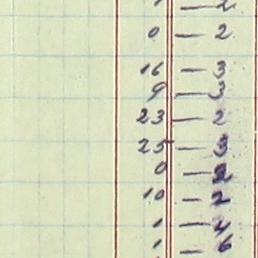 0 — 2
16 — 3
9 — 3
23 — 2
25 — 3
0 — 2
10 — 2
1 — 4
1 — 6